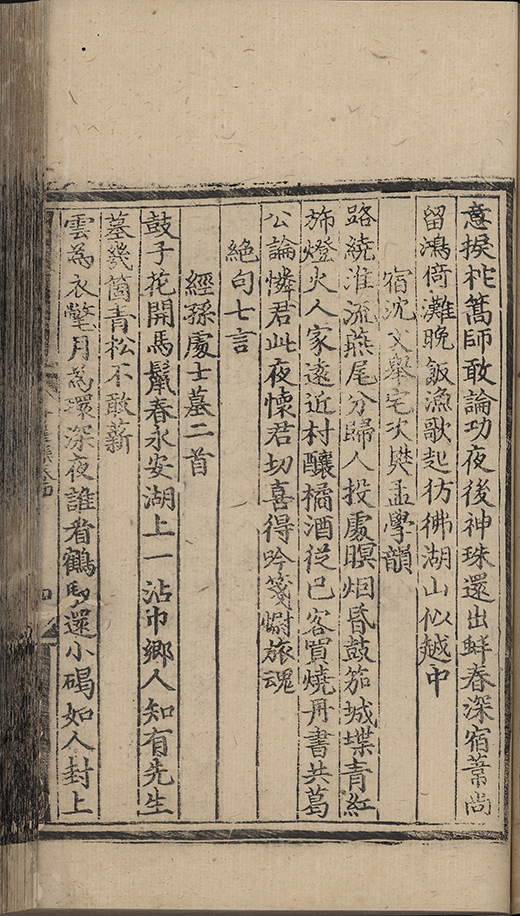 意捩柁篙師敢論功夜後神珠還出蚌春深宿葦尚
留鴻倚灘晚飯漁歌起彷彿湖山似越中
宿沈文舉宅次㷠孟學韻
路繞淮流燕尾分歸人投處暝烟昏鼓笳城堞青紅
斾燈火人家遠近村釀橘酒從巴客買燒丹書共葛
公論憐君此夜懷君切喜得吟箋慰旅魂
絶句七言
經孫處士墓二首
鼓子花開馬鬣春永安湖上一沾巾鄉人知有先生
墓幾箇青松不敢薪
雲為衣氅月為環深夜誰看鶴馭還小碣如人封上